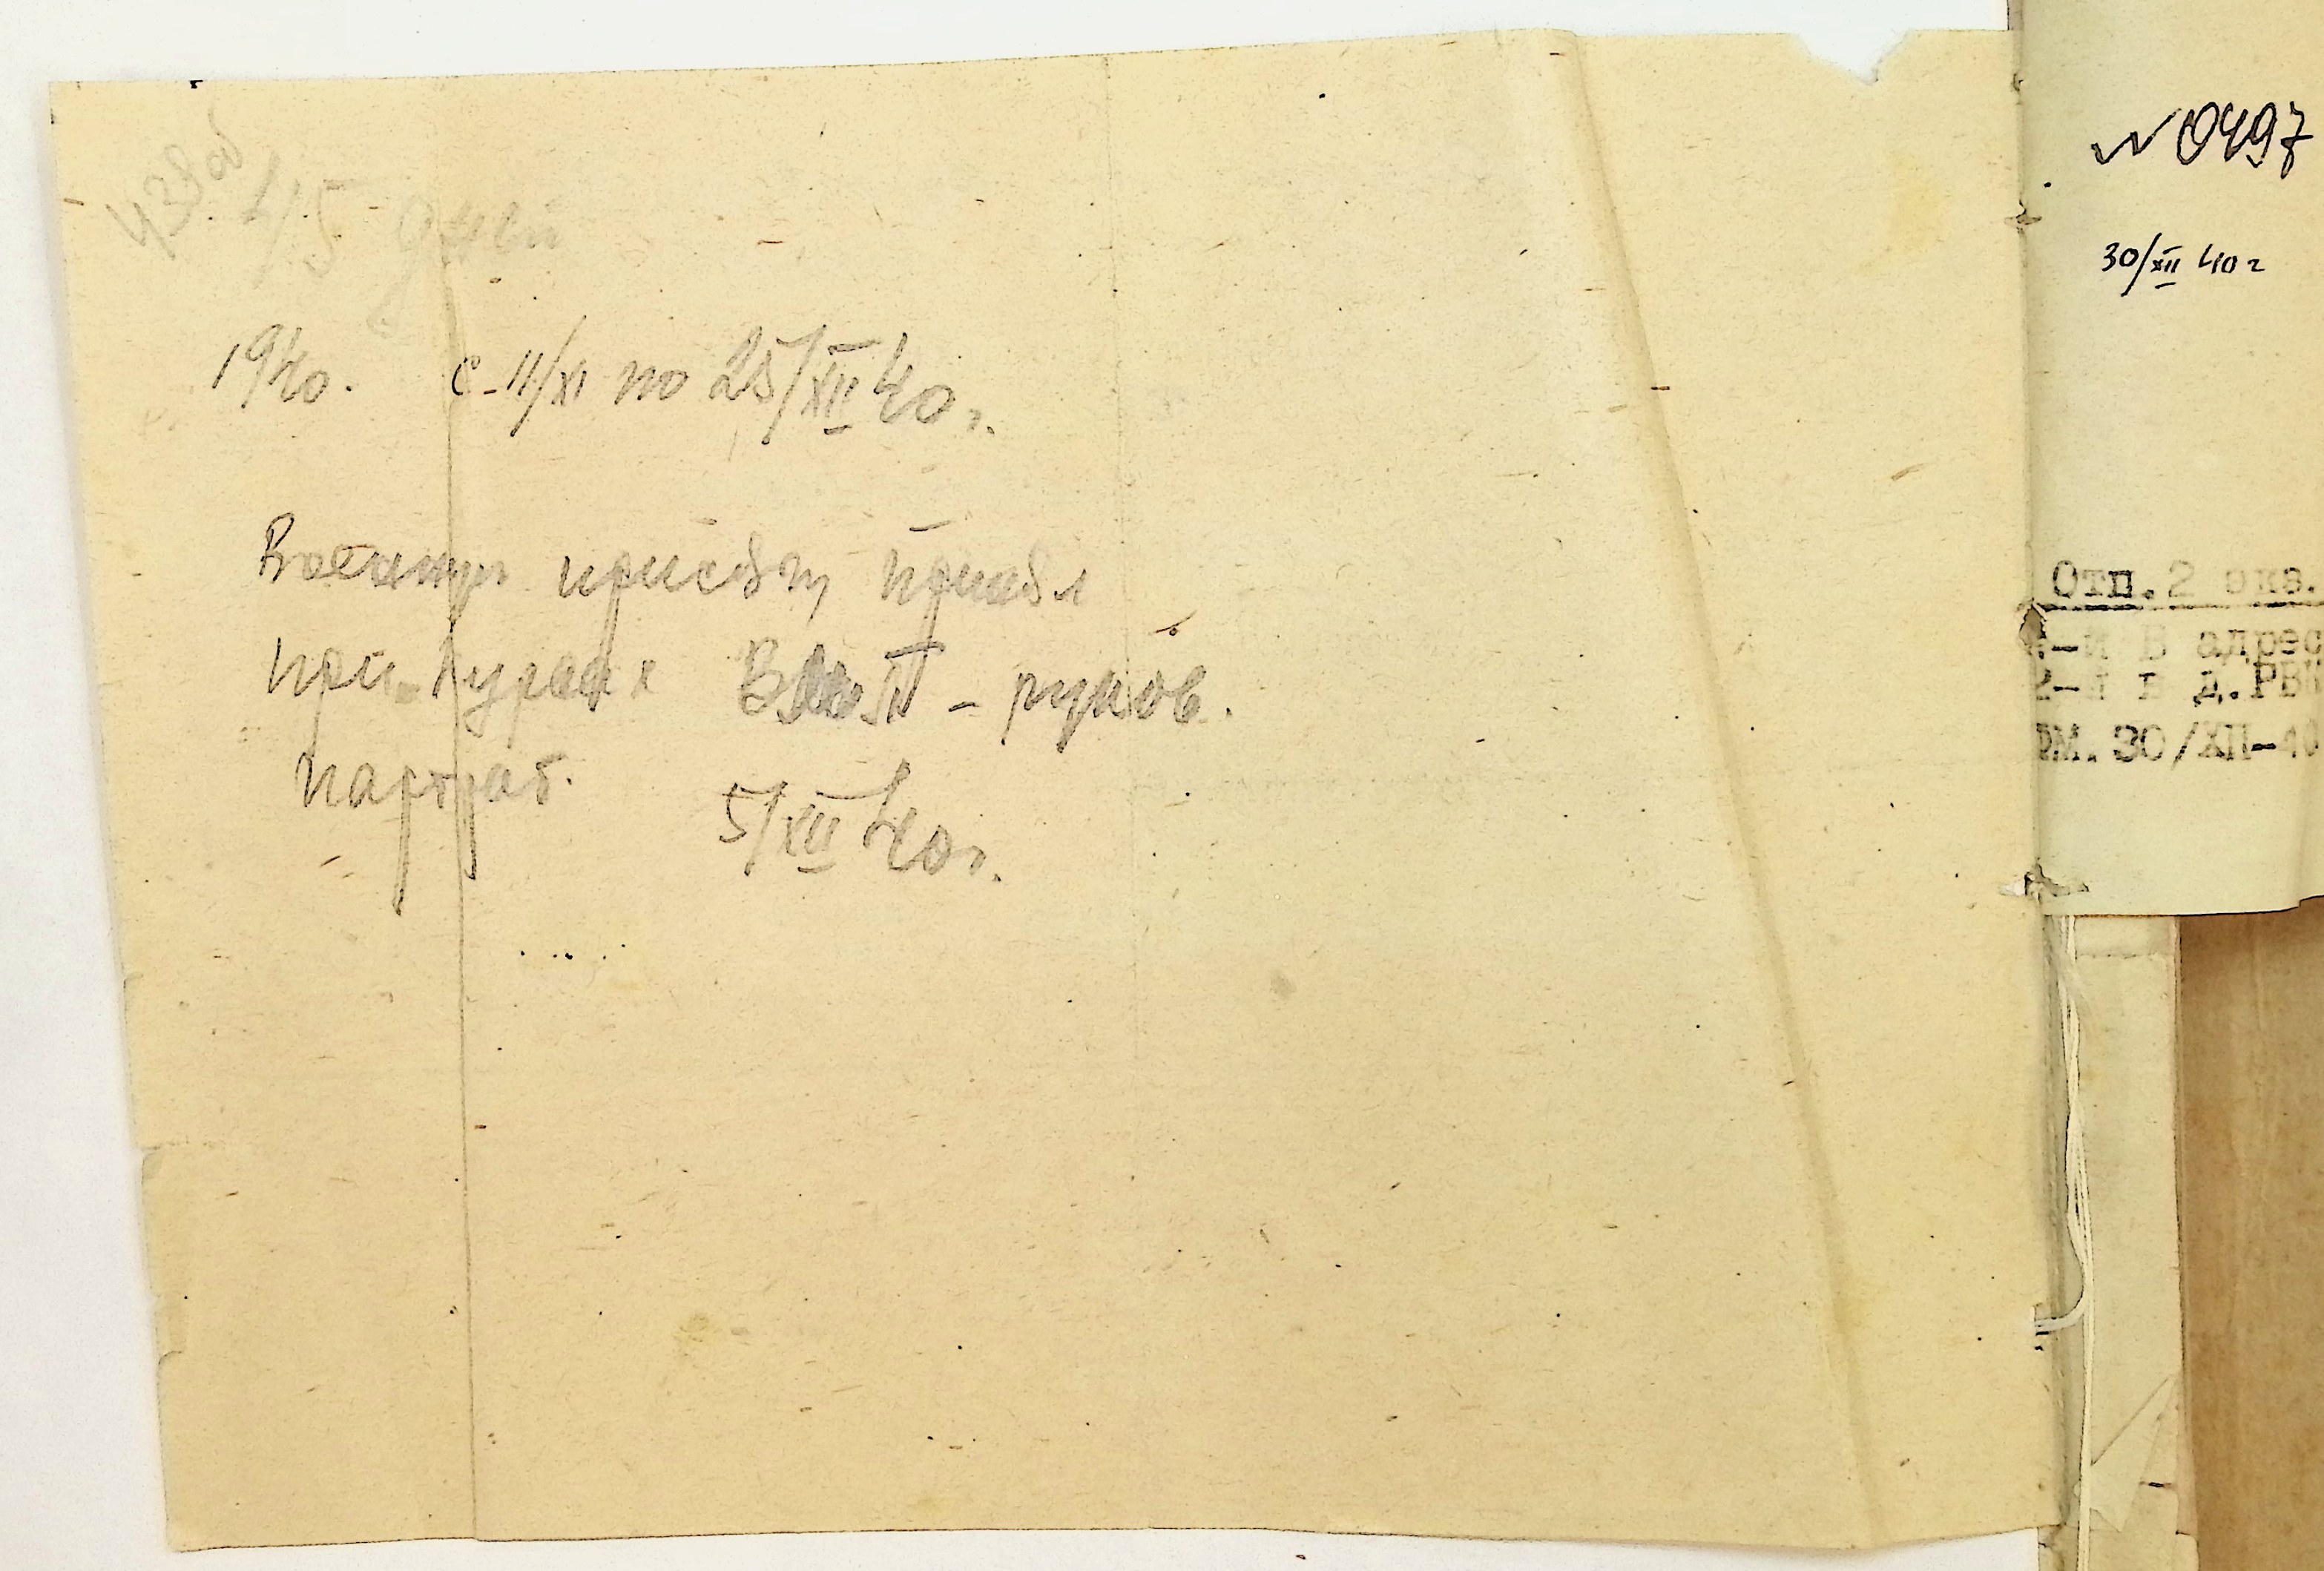 43 об
45 дней
1940. с-11/XI по 25/XII 40 г.
присягу принял
при курсах - руков.
парт раб.
5/XII 40 г.
№ 0497
30/XII 40 г
Отп. 2 экз.
1-й В адрес
2-й в д. РВК
РМ. 30/XII-40